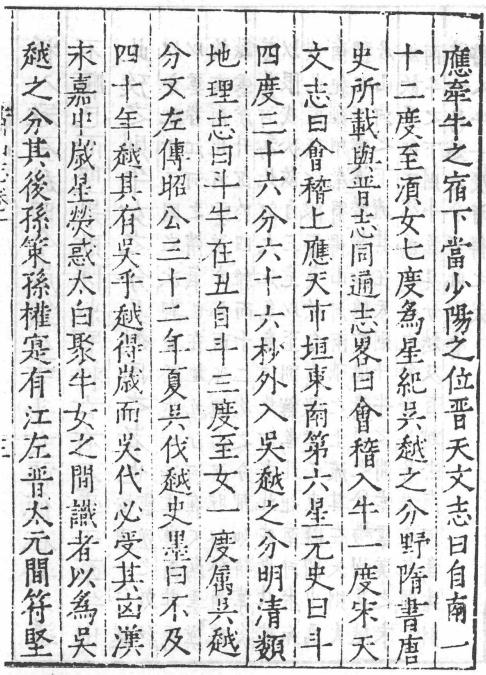 應牽牛之宿下當少陽之位晉天文志曰自南一
十二度至湏女七度為星紀吳越之分野隋書唐
史所載與晉志同通志畧曰會稽入牛一度宋天
文志曰會稽上應天市垣東南第六星元史曰斗
四度三十六分六十六杪外入吳越之分明清類
地理志曰斗牛在丑自斗三度至女一度属吳越
分又左傳昭公三十二年夏吳伐越史墨曰不及
四十年越其有吳乎越得歲而吳代必受其凶漢
末嘉中歲星熒惑太白聚牛女之間識者以為吳
越之分其後孫策孫權寔有江左晉太元間符堅